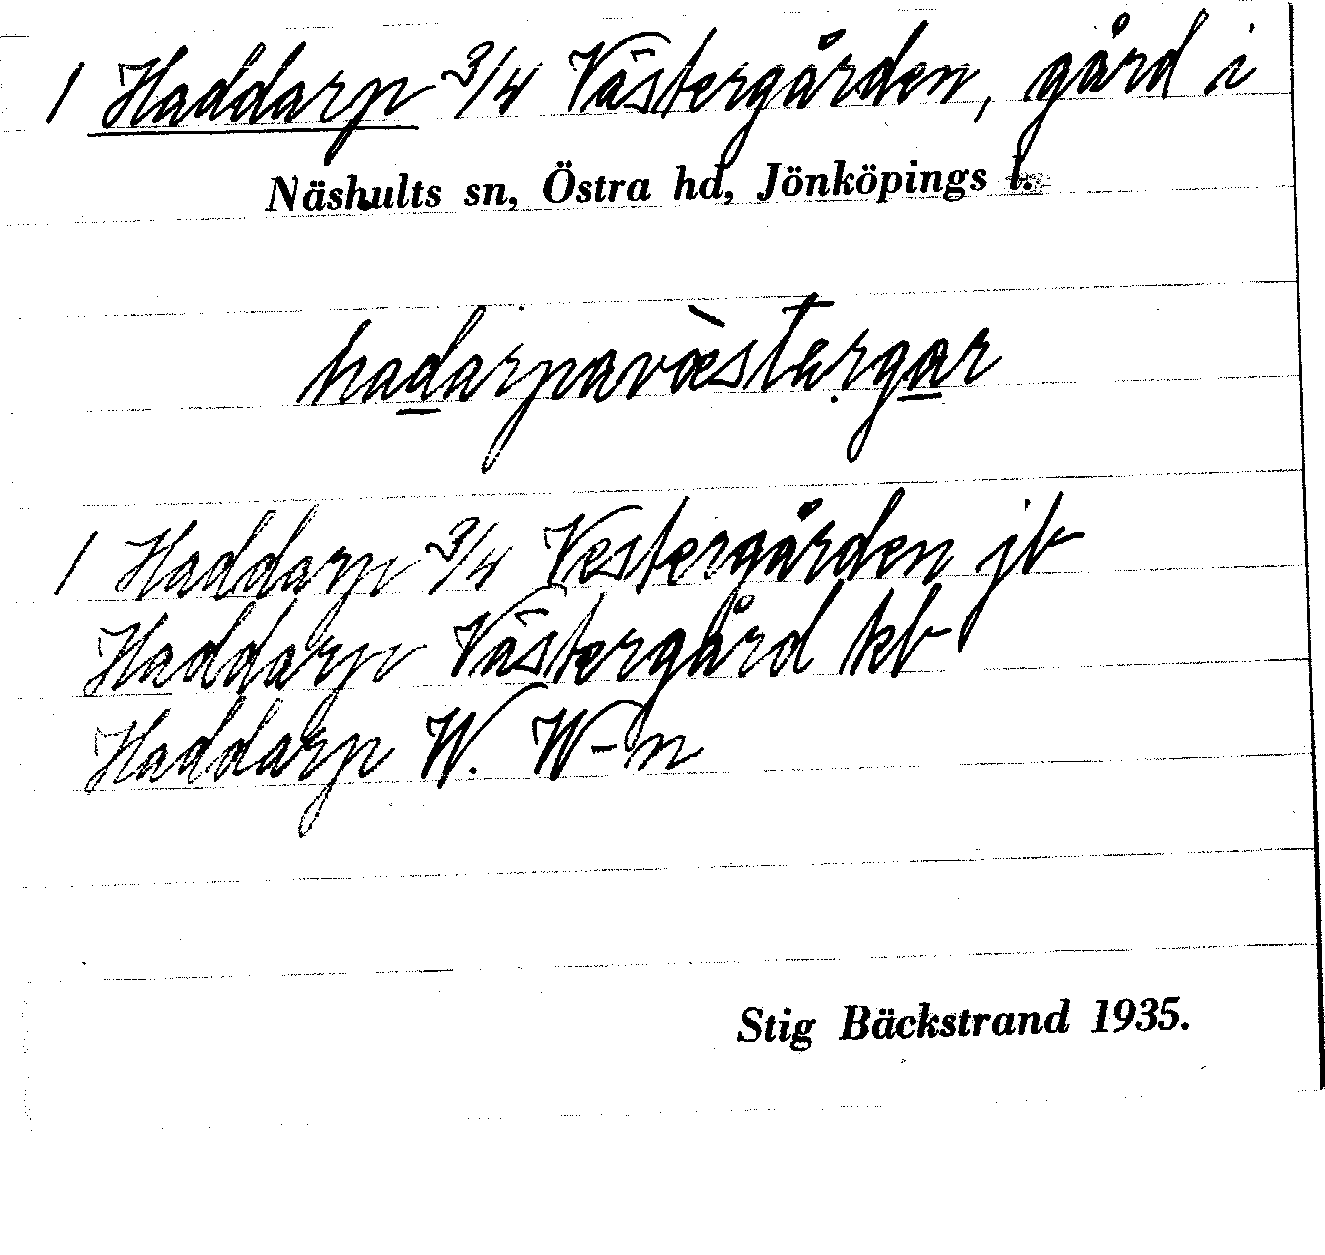 1 Haddarp 3/4 Västergården, gård i
Näshults sn, Östra hd, Jönköpings l.
hadarpavæ̀stargar
1 Haddarp 3/4 Vestergården jb
Haddarp Västergård kb
Haddarp W. W-m
Stig Bäckstrand 1935.